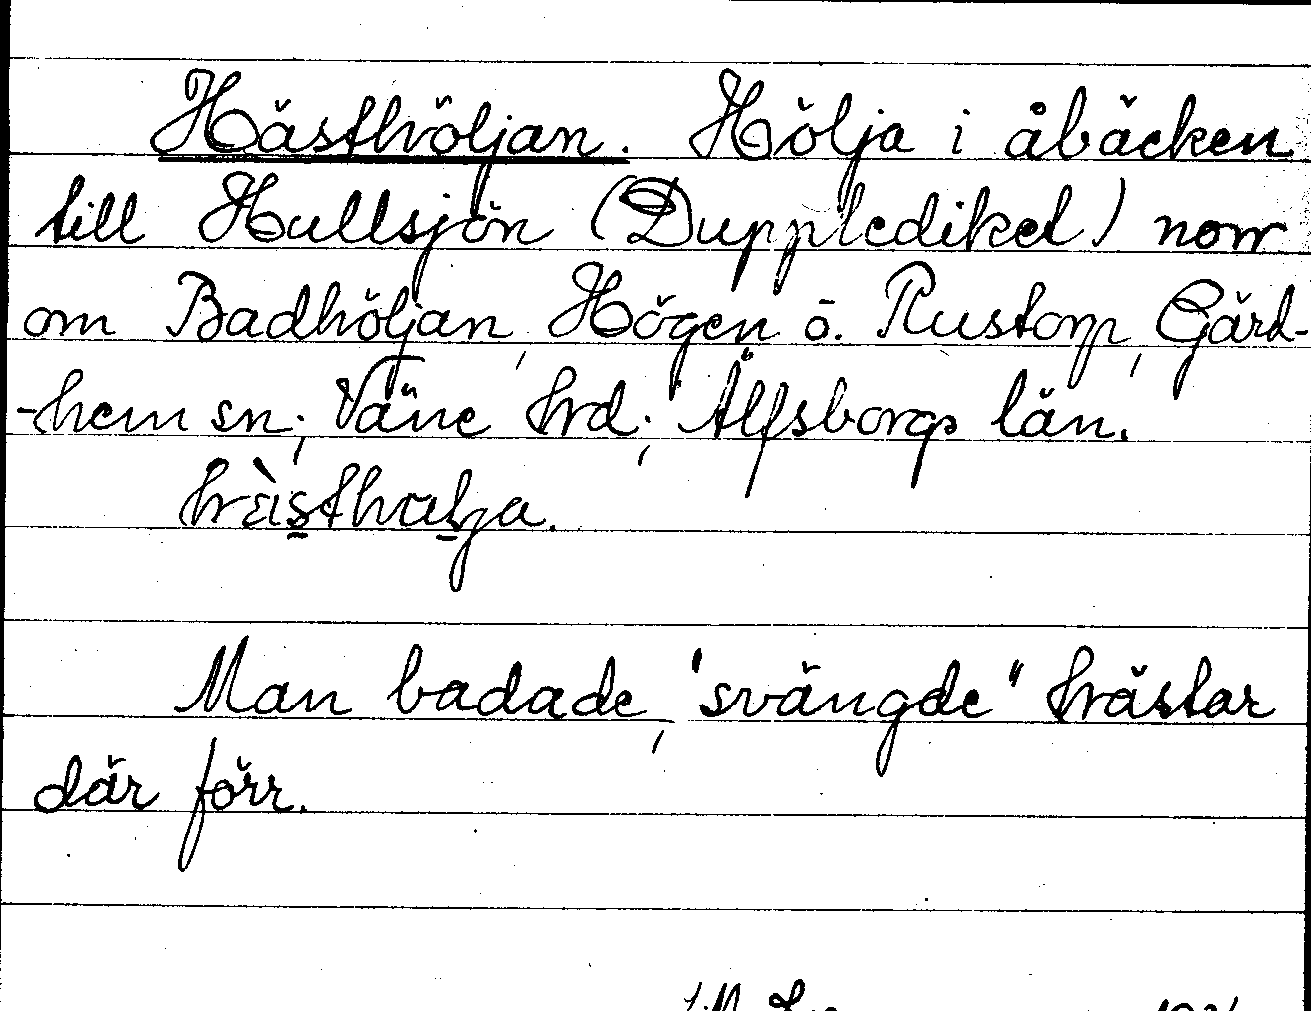 Hästhöljan. Hölja i åbäcken
till Hullsjön (Duppledikel) norr
om Badhöljan, Högen ö. Rustorp, Gärd-
-hem sn; Väne hrd; Älfsborgs län.
Man badade, "svängde" hästar
där förr.